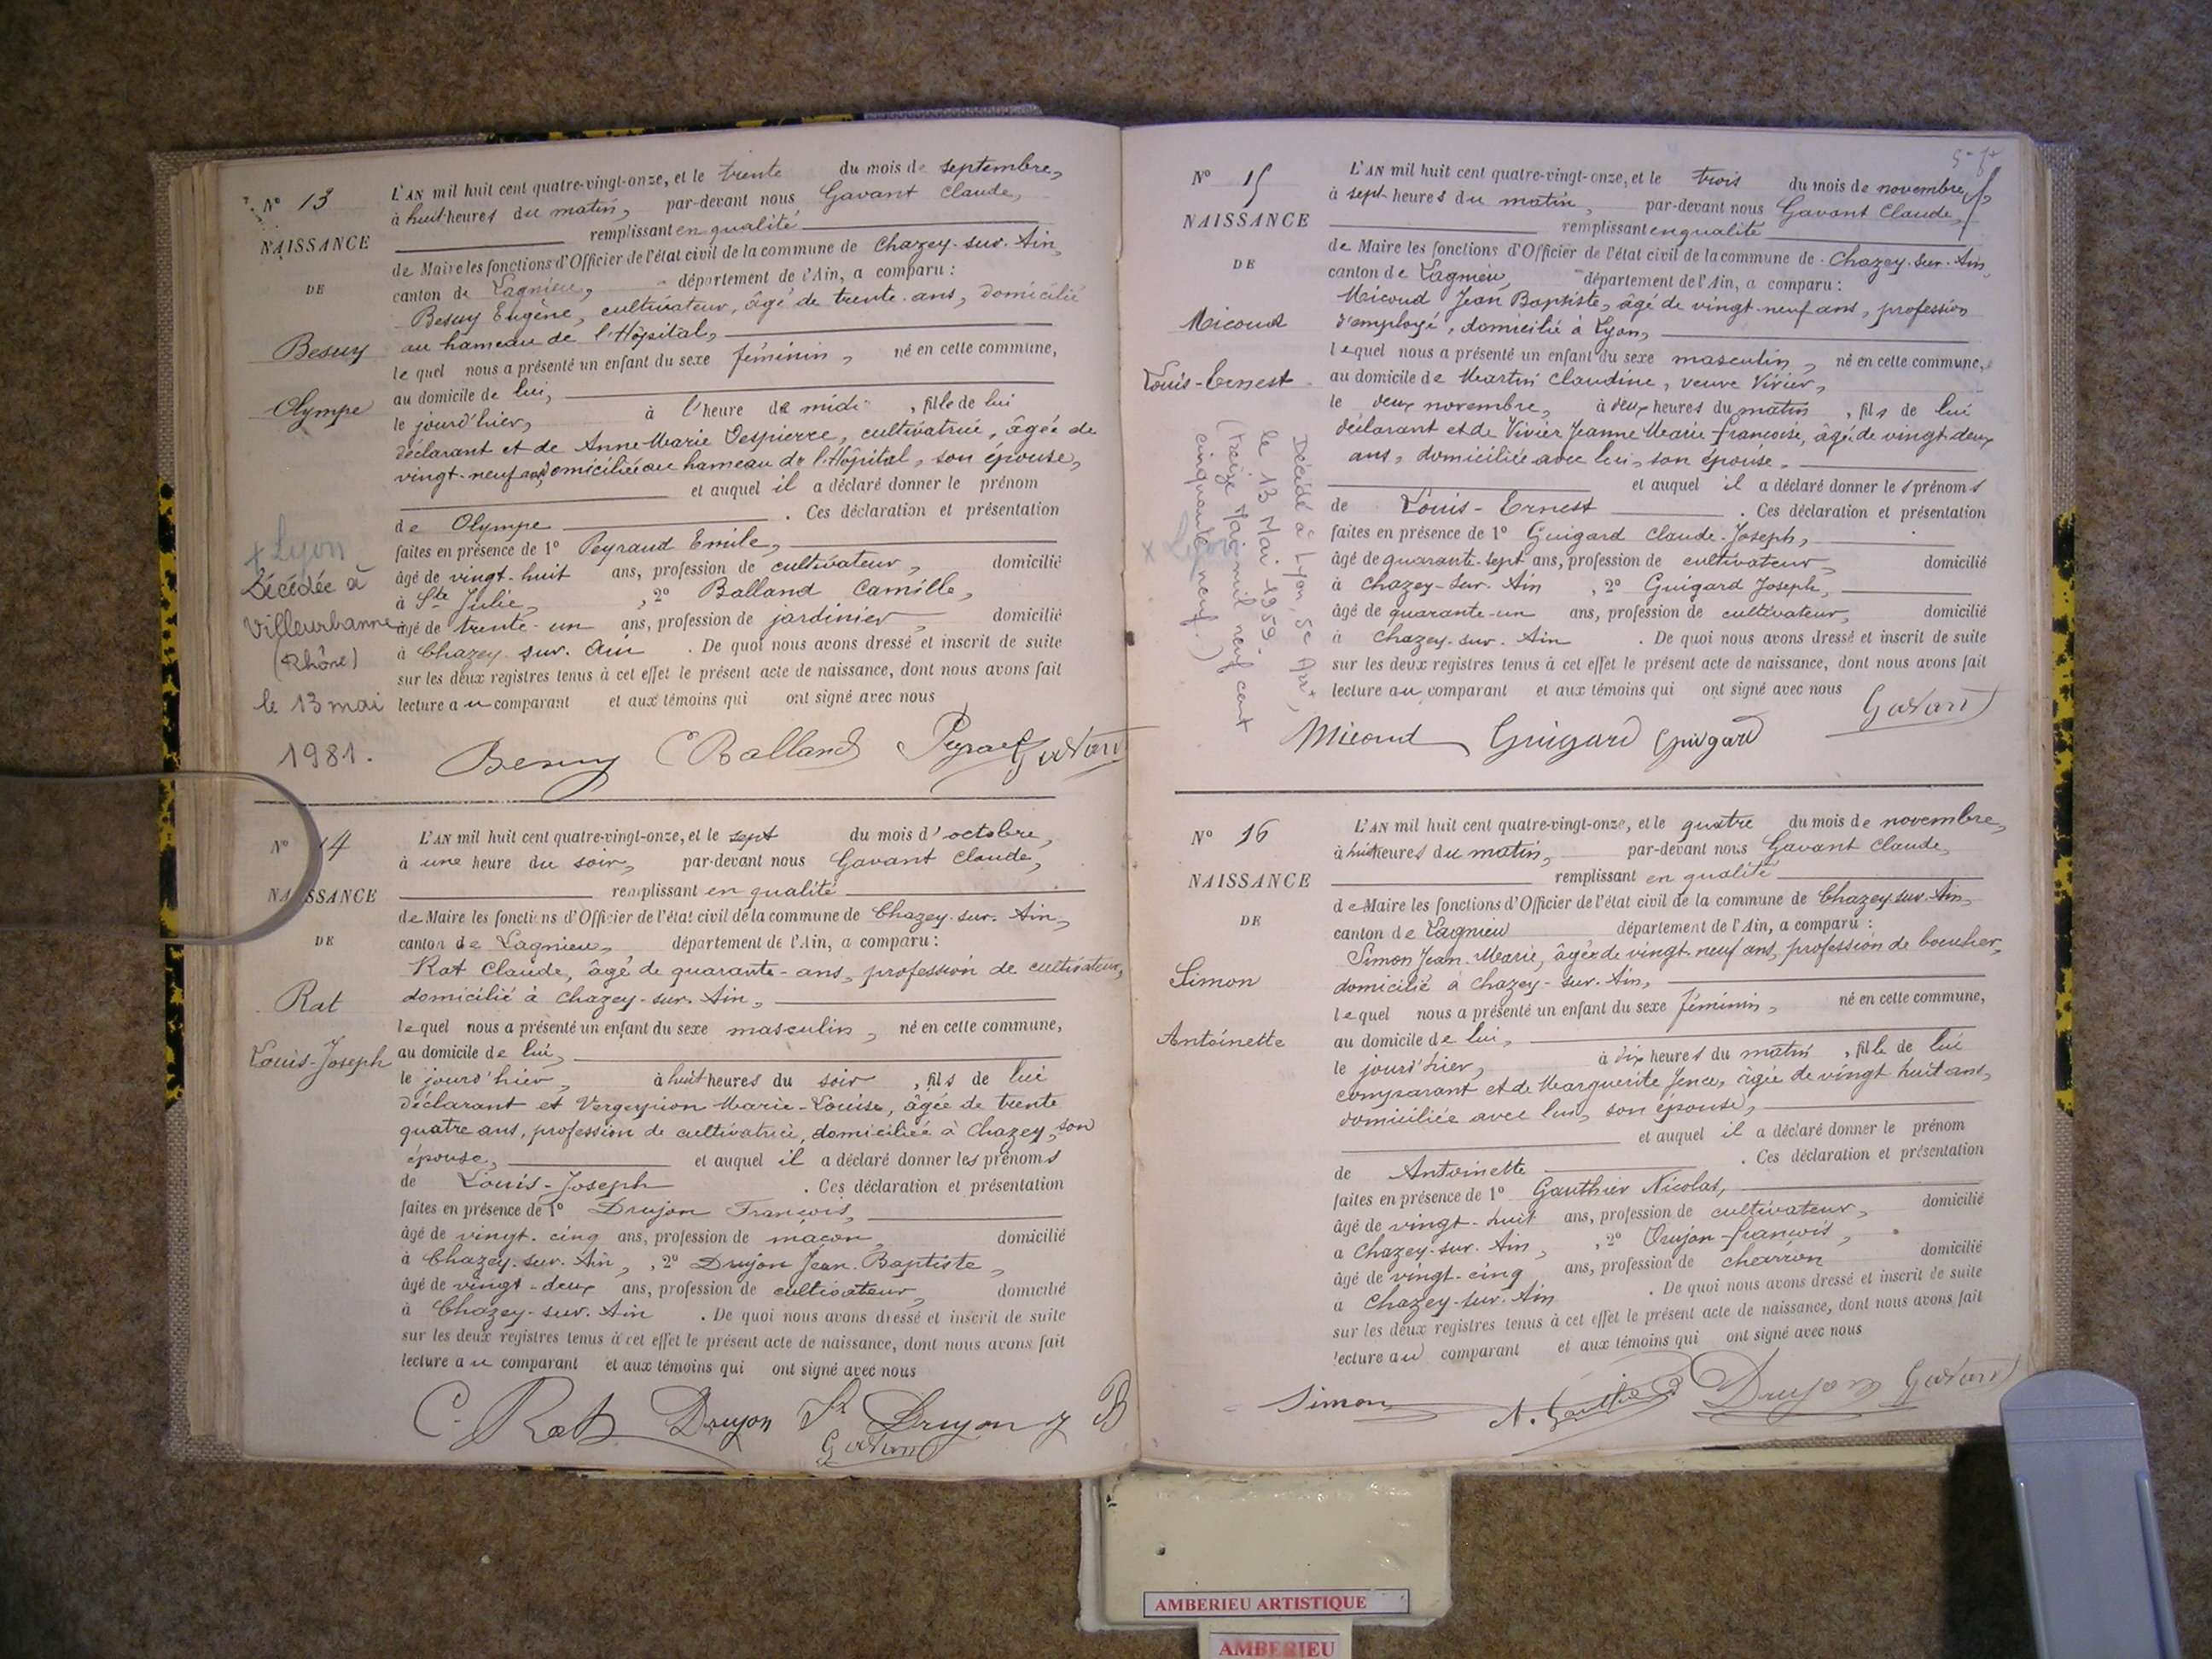 N° 13
NAISSANCE
DE
Besuy
Olympe
+ Lyon
Décédée à
Villeurbanne
(Rhône)
le 13 mai
1981.
L'AN mil huit cent quatre-vingt-onze, et le trente du mois de septembre,
à huit heures du matin, par-devant nous Gavant Claude,
remplissant en qualité
de Maire les fonctions d'Officier de l'état civil de la commune de Chazey-sur-Ain,
canton de Lagnieu, département de l'Ain, a comparu :
Besuy Eugène, cultivateur, âgé de trente ans, domicilié
au hameau de l'Hôpital,
lequel nous a présenté un enfant du sexe féminin, né en cette commune,
au domicile de lui,
le jourd'hier, à l'heure de midi, fille de lui
déclarant et de Anne Marie Despierre, cultivatrice, âgée de
vingt-neuf ans, domiciliée au hameau de l'Hôpital, son épouse,
et auquel il a déclaré donner le prénom
de Olympe. Ces déclaration et présentation
faites en présence de 1° Peyraud Emile,
âgé de vingt-huit ans, profession de cultivateur, domicilié
à Ste Julie, , 2° Balland Camille,
âgé de trente-un ans, profession de jardinier, domicilié
à Chazey-sur-Ain. De quoi nous avons dressé et inscrit de suite
sur les deux registres tenus à cet effet le présent acte de naissance, dont nous avons fait
lecture au comparant et aux témoins qui ont signé avec nous
Besuy C Balland Peyraud Gavant
N° 14
NAISSANCE
DE
Rat
Louis-Joseph
L'AN mil huit cent quatre-vingt-onze, et le sept du mois d'octobre,
à une heure du soir, par-devant nous Gavant Claude,
remplissant en qualité
de Maire les fonctions d'Officier de l'état civil de la commune de Chazey-sur-Ain,
canton de Lagnieu, département de l'Ain, a comparu :
Rat Claude, âgé de quarante-ans, profession de cultivateur,
domicilié à Chazey-sur-Ain,
lequel nous a présenté un enfant du sexe masculin, né en cette commune,
au domicile de lui,
le jourd'hier, à huit heures du soir, fils de lui
déclarant et Vergeynion Marie-Louise, âgée de trente
quatre ans, profession de cultivatrice, domiciliée à Chazey, son
épouse, et auquel il a déclaré donner les prénoms
de Louis-Joseph. Ces déclaration et présentation
faites en présence de 1° Drujon François,
âgé de vingt-cinq ans, profession de maçon, domicilié
à Chazey-sur-Ain, , 2° Drujon Jean-Baptiste,
âgé de vingt-deux ans, profession de cultivateur, domicilié
à Chazey-sur-Ain. De quoi nous avons dressé et inscrit de suite
sur les deux registres tenus à cet effet le présent acte de naissance, dont nous avons fait
lecture au comparant et aux témoins qui ont signé avec nous
C. Rat Drujon Drujon J B
Gavant
N° 15
NAISSANCE
DE
Micoud
Louis-Ernest
Décédé à Lyon, 5e Arrt,
le 13 Mai 1959.
(treize Mai mil neuf cent
cinquante neuf.)
x Lyon
L'AN mil huit cent quatre-vingt-onze, et le trois du mois de novembre,
à sept heures du matin, par-devant nous Gavant Claude,
remplissant en qualité
de Maire les fonctions d'Officier de l'état civil de la commune de Chazey-sur-Ain,
canton de Lagnieu, département de l'Ain, a comparu :
Micoud Jean Baptiste, âgé de vingt-neuf ans, profession
d'employé, domicilié à Lyon,
lequel nous a présenté un enfant du sexe masculin, né en cette commune,
au domicile de Martin Claudine, veuve Vivier,
le deux novembre, à deux heures du matin, fils de lui
déclarant et de Vivier Jeanne Marie françoise, âgée de vingt-deux
ans, domiciliée avec lui, son épouse,
et auquel il a déclaré donner les prénoms
de Louis-Ernest. Ces déclaration et présentation
faites en présence de 1° Guigard Claude-Joseph,
âgé de quarante-sept ans, profession de cultivateur, domicilié
à Chazey-sur-Ain, 2° Guigard Joseph,
âgé de quarante-un ans, profession de cultivateur, domicilié
à Chazey-sur-Ain. De quoi nous avons dressé et inscrit de suite
sur les deux registres tenus à cet effet le présent acte de naissance, dont nous avons fait
lecture au comparant et aux témoins qui ont signé avec nous
Gavant
Micoud Guigard Guigard
N° 16
NAISSANCE
DE
Simon
Antoinette
L'AN mil huit cent quatre-vingt-onze, et le quatre du mois de novembre,
à huit heures du matin, par-devant nous Gavant Claude,
remplissant en qualité
de Maire les fonctions d'Officier de l'état civil de la commune de Chazey-sur-Ain,
canton de Lagnieu département de l'Ain, a comparu :
Simon Jean-Marie, âgé de vingt-neuf ans, profession de boucher,
domicilié à Chazey-sur-Ain,
lequel nous a présenté un enfant du sexe féminin, né en cette commune,
au domicile de lui,
le jourd'hier, à dix heures du matin, fille de lui
comparant et de Marguerite Jence, âgée de vingt huit ans,
domiciliée avec lui, son épouse,
et auquel il a déclaré donner le prénom
de Antoinette. Ces déclaration et présentation
faites en présence de 1° Gauthier Nicolas,
âgé de vingt-huit ans, profession de cultivateur, domicilié
à Chazey-sur-Ain, , 2° Drujon françois,
âgé de vingt-cinq ans, profession de charron domicilié
à Chazey-sur-Ain. De quoi nous avons dressé et inscrit de suite
sur les deux registres tenus à cet effet le présent acte de naissance, dont nous avons fait
lecture au comparant et aux témoins qui ont signé avec nous
Simon N. Gauthier Drujon Gavant
AMBERIEU ARTISTIQUE
AMBERIEU